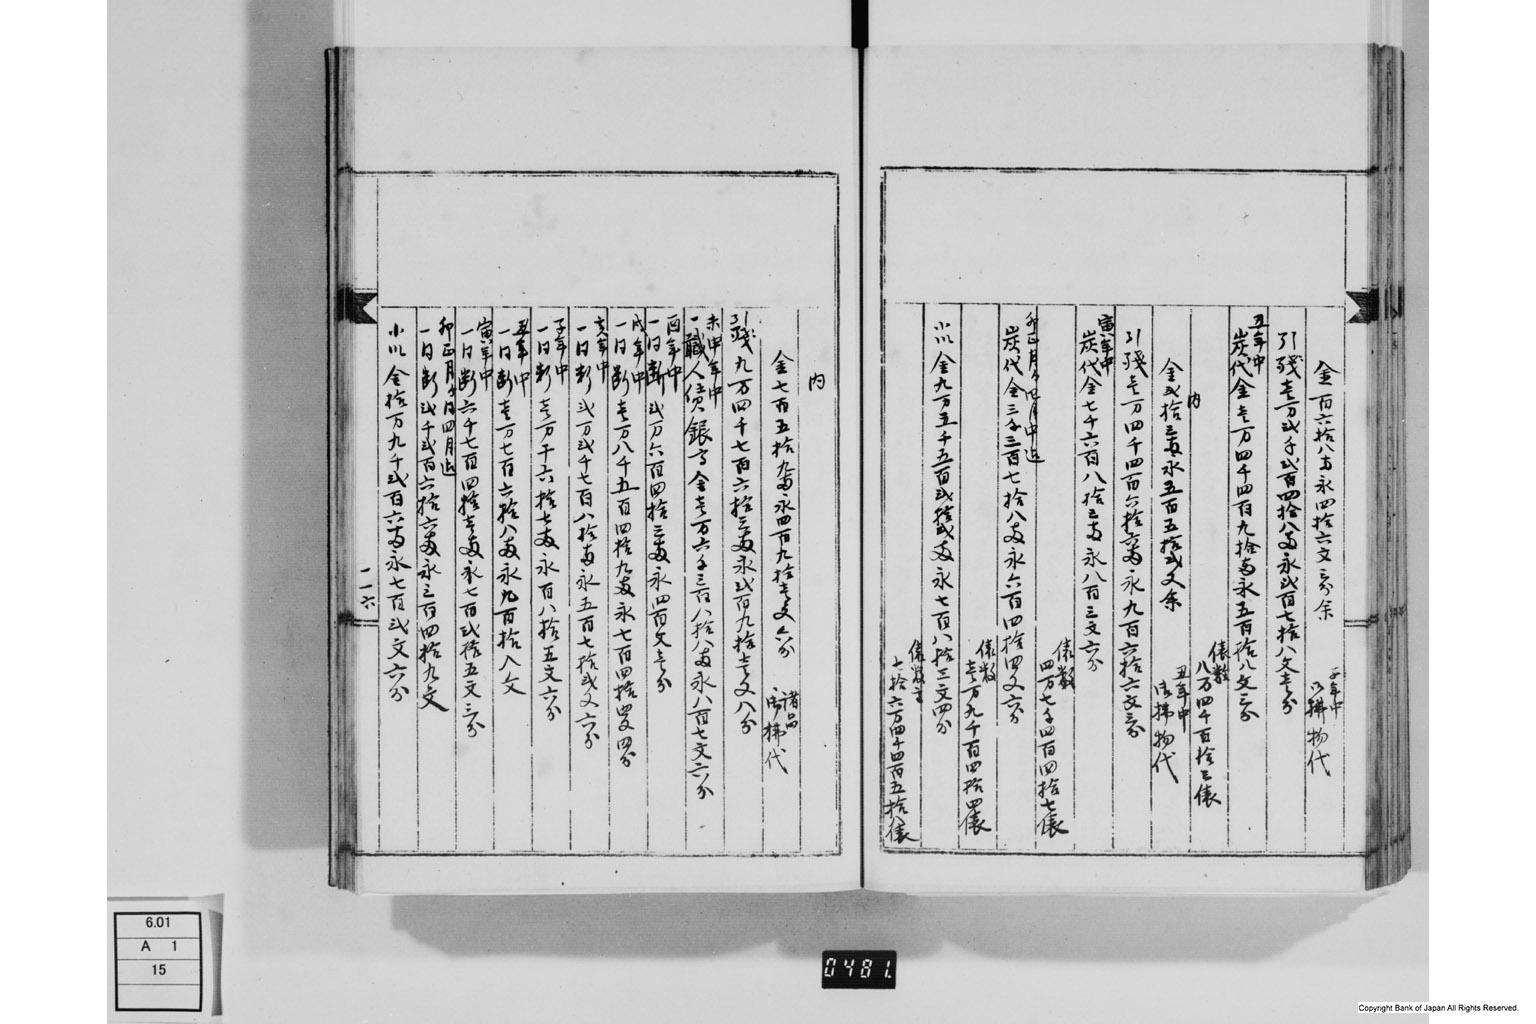 金百六拾八両永四拾六文三分余
子年中
御払物代
引残壱万弐千弐百四拾八両永弐百七拾八文壱分
丑年中
炭代金壱万四千四百九拾両永五百拾八文三分
俵数
八万四千百拾三俵
内
金弐拾三両永五百五拾弐文余
丑年中
御払物代
引残壱万四千四百六拾六両永九百六拾六文三分
寅年中
炭代金七千六百八拾三両永八百三文六分
俵数
四万七千四百四拾七俵
卯正月ゟ四月中迄
炭代金三千三百七拾八両永六百四拾四文六分
俵数
壱万九千百四拾四俵
小以金九万五千五百弐拾弐両永七百八拾三文四分
俵数〆
七拾六万四千四百五拾俵
内
金七百五拾九両永四百九拾壱文六分
諸品
御払代
引残九万四千七百六拾三両永弐百九拾壱文八分
未申年中
一職人債銀等金壱万六千三百八拾八両永八百七文六分
酉年中
一同断弐万六百四拾三両永四百文壱分
戌年中
一同断壱万八千五百四拾九両永七百四拾四文四分
亥年中
一同断弐万弐千七百八拾両永五百七拾弐文六分
子年中
一同断壱万千六拾七両永百八拾五文六分
丑年中
一同断壱万七百六拾八両永九百拾八文
寅年中
一同断六千七百四拾壱両永七百弐拾五文三分
卯正月ゟ同四月迄
一同断弐千弐百六拾六両永三百四拾九文
小以金拾万九千弐百六両永七百弐文六分
一一六
6.01
A 1
15
0481.
Copyright Bank of Japan All Rights Reserved.